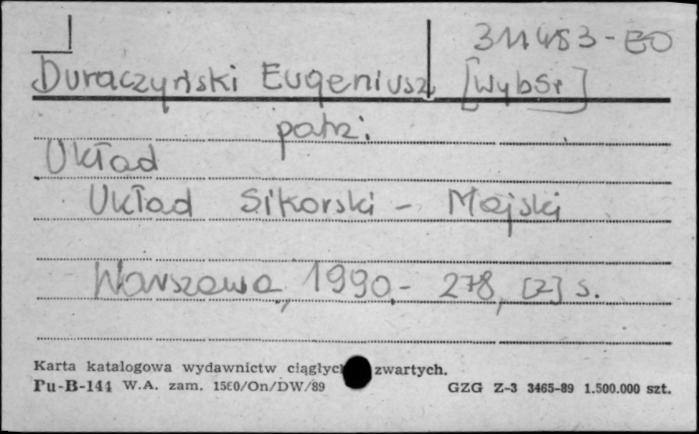 311483-BO
Duraczyński Eugeniusz [Wybór]
patrz:
Układ
Układ Sikorski - Majski
Warszawa, 1990.- 278, [2] s.
Karta katalogowa wydawnictw ciągłyc zwartych.
Pu-B-144 W.A. zam. 1560/On/DW/89 GZG Z-3 3465-89 1.500.000 szt.